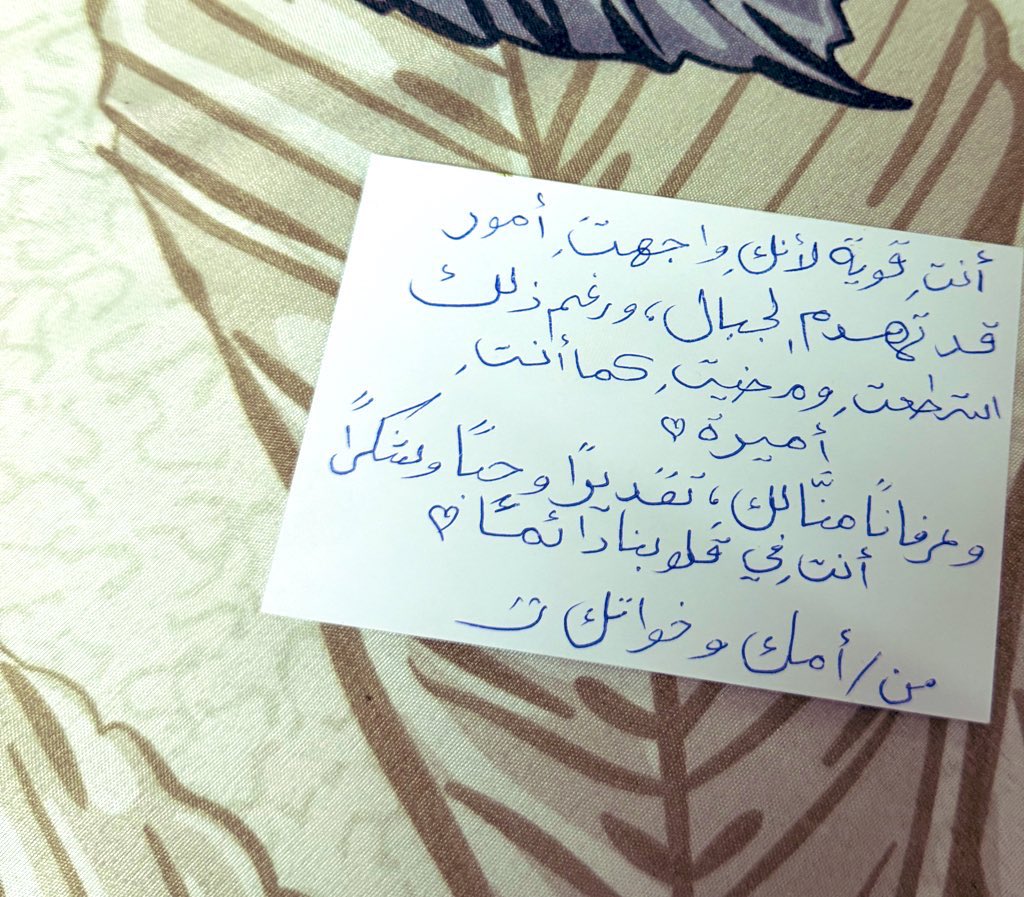 أنتِ قوية لأنكِ واجهتِ أمور
قد تهدم الجبال، ورغم ذلك
استطعتِ ومضيتِ كما أنتِ
أميرة ♡
وعرفانًا منَّا لكِ، تقديرًا وحبًا وشكرًا
أنتِ في قلوبنا دائمًا ♡
من/ أمك وخواتك